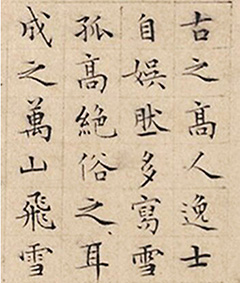 古之髙人逸士
自娱然多寫雪
孤髙絶俗之耳
成之萬山飛雪